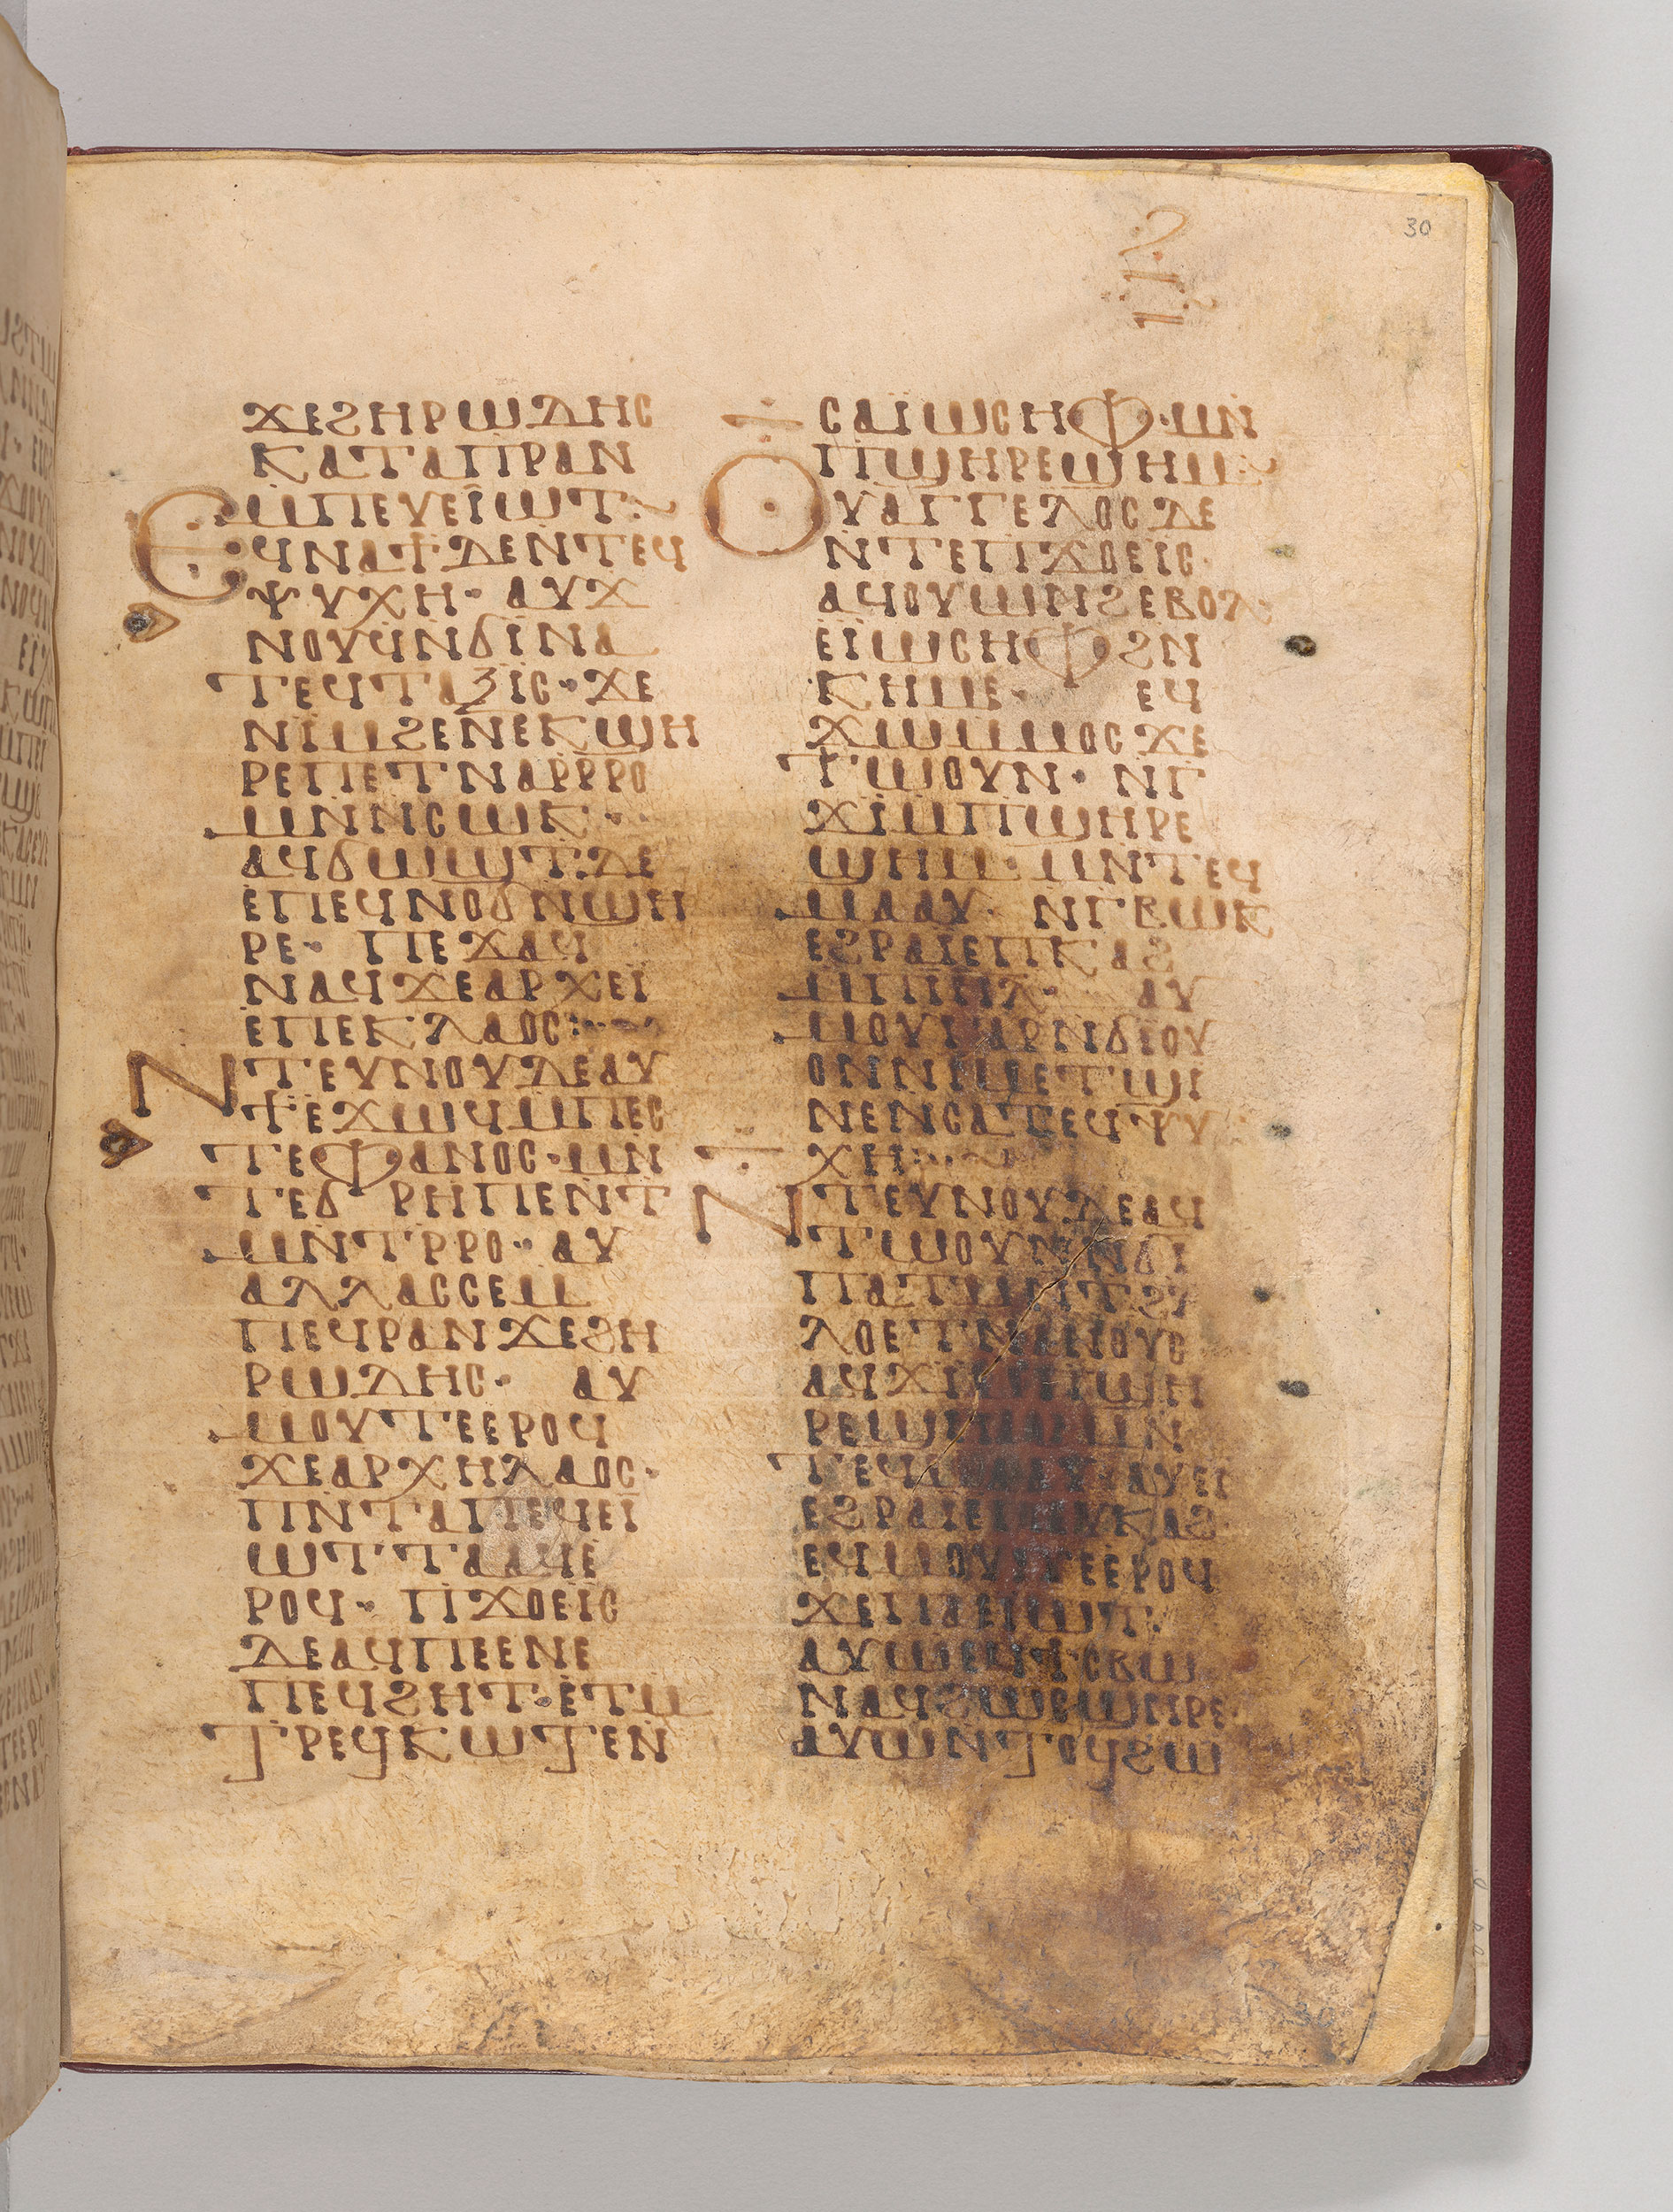 30
ϫⲉϩⲏⲣⲱⲇⲏⲥ
ⲕⲁⲧⲁⲡⲣⲁⲛ
ⲙⲡⲉⲩⲉⲓⲱⲧ:~
Ⲉϥⲛⲁϯⲇⲉⲛⲧⲉϥ
ⲯⲩⲭⲏ· ⲁⲩϫ
ⲛⲟⲩϥⲛϭⲓⲛⲁ
ⲧⲉϥⲧⲁⲝⲓⲥ· ϫⲉ
ⲛⲓⲙϩⲉⲛⲉⲕϣⲏ
ⲣⲉⲡⲉⲧⲛⲁⲣⲣⲣⲟ
ⲙⲛⲛⲥⲱⲕ·
ⲁϥϭⲱϣⲧ·ⲇⲉ
ⲉⲡⲉϥⲛⲟϭⲛϣⲏ
ⲣⲉ· ⲡⲉϫⲁϥ
ⲛⲁϥϫⲉⲁⲣⲭⲉⲓ
ⲉⲡⲉⲕⲗⲁⲟⲥ:~
Ⲛⲧⲉⲩⲛⲟⲩⲇⲉⲁⲩ
ϯⲉϫⲱϥⲙⲡⲉⲥ
ⲧⲉⲫⲁⲛⲟⲥ·ⲙⲛ
ⲧⲉϭ ⲣⲏⲡⲉⲛⲧ
ⲙⲛⲧⲣⲣⲟ· ⲁⲩ
ⲁⲗⲗⲁⲥⲥⲉⲙ
ⲡⲉϥⲣⲁⲛϫⲉϩⲏ
ⲣⲱⲇⲏⲥ· ⲁⲩ
ⲙⲟⲩⲧⲉⲉⲣⲟϥ
ϫⲉⲁⲣⲭⲏⲗⲁⲟⲥ·
ⲡⲛⲧⲁⲡⲉϥⲉⲓ
ⲱⲧⲧⲁⲁϥⲉ
ⲣⲟϥ· ⲡϫⲟⲉⲓⲥ
ⲇⲉⲁϥⲡⲉⲉⲛⲉ
ⲡⲉϥϩⲏⲧ·ⲉⲧⲙ
ⲧⲣⲉϥⲕⲱⲧⲉⲛ
ⲥⲁⲓⲱⲥⲏⲫ·ⲙⲛ
ⲡϣⲏⲣⲉϣⲏⲙ:~
Ⲟⲩⲁⲅⲅⲉⲗⲟⲥⲇⲉ
ⲛⲧⲉⲡϫⲟⲉⲓⲥ·
ⲁϥⲟⲩⲱⲛϩⲉⲃⲟⲗ
ⲉⲓⲱⲥⲏⲫϩⲛ
ⲕⲏⲙⲉ· ⲉϥ
ϫⲱⲙⲙⲟⲥϫⲉ
ⲧⲱⲟⲩⲛ· ⲛⲅ
ϫⲓⲙⲡϣⲏⲣⲉ
ϣⲏⲙ· ⲙⲛⲧⲉϥ
ⲙⲁⲁⲩ· ⲛⲅⲃⲱⲕ
ⲉϩⲣⲁⲓⲉⲡⲕⲁϩ
ⲙⲡⲓⲏⲗ· ⲁⲩ
ⲙⲟⲩⲅⲁⲣⲛϭⲓⲟⲩ
ⲟⲛⲛⲓⲙⲉⲧϣⲓ
ⲛⲉⲛⲥⲁⲧⲉϥⲯⲩ
ⲭⲏ:~
Ⲛⲧⲉⲩⲛⲟⲩⲇⲉⲁϥ
ⲧⲱⲟⲩⲛⲛϭⲓ
ⲗⲟⲉⲧⲛⲁⲛⲟⲩϥ
ⲁϥϫⲓⲙⲡϣⲏ
ⲣⲉϣⲏⲙ·ⲙⲛ
ⲧⲉϥⲙⲁⲁⲩ·ⲁⲩⲉⲓ
ⲉϥⲙⲟⲩⲧⲉⲉⲣⲟϥ
ϫⲉⲡⲁⲉⲓⲱⲧ·
ⲁⲩⲱⲉϥϯⲥⲃⲱ
ⲛⲁϥϩⲱⲥϣⲏⲣⲉ·
ⲁⲩⲱⲛⲧⲟϥϩⲱ